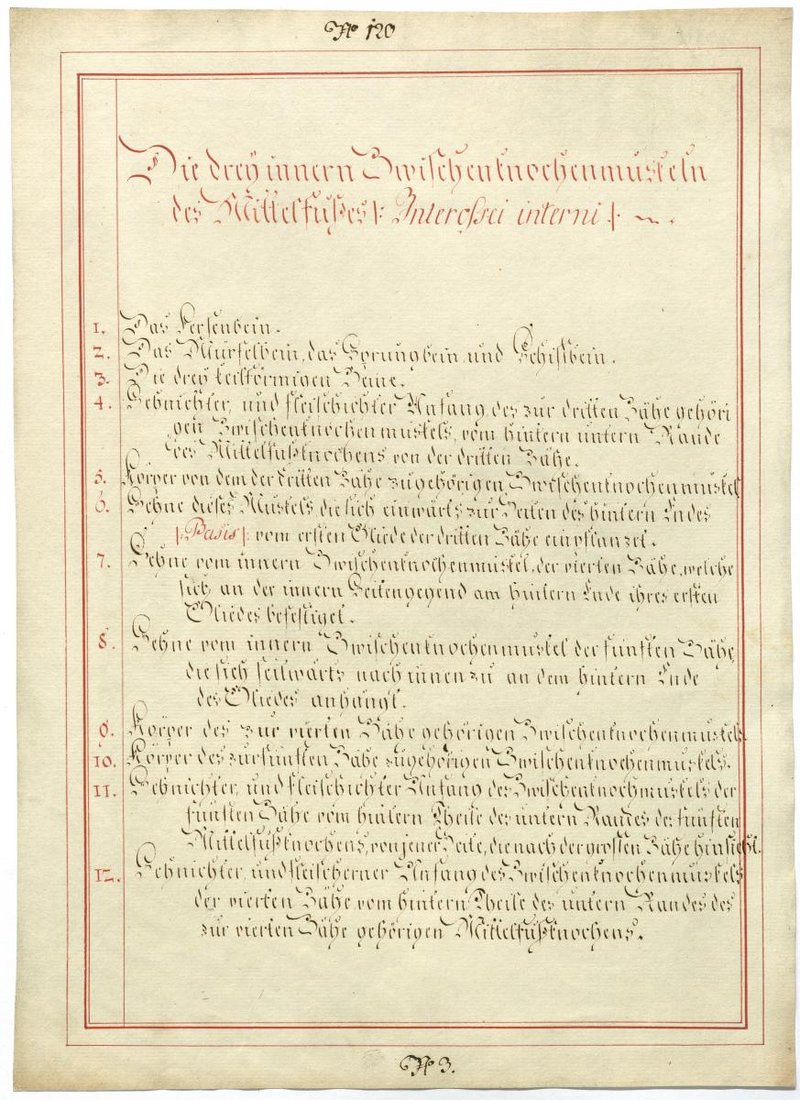 No 120
Die drey innern Zwischenknochenmuskeln
des Mittelfußes |: Interossei interni :|
1. Das Fersenbein.
2. Das Würfelbein, das Sprungbein, und Schifbein.
3. Die drey keilförmigen Beine.
4. Sehnichter, und fleischichter Anfang, des zur dritten Zähe gehöri
gen Zwischenknochenmuskels, vom hintern untern Rande
des Mittelfußknochens von der dritten Zähe.
5. Körper von dem der dritten Zähe zugehörigen Zwischenknochenmuskel
6. Sehne dieses Muskels die sich einwärts zur Seiten des hintern Endes
|: Basis :| vom ersten Gliede der dritten Zähe einpflanzet.
7. Sehne vom innern Zwischenknochenmuskel, der vierten Zähe, welche
sich, an der innern Seitengegend am hintern Ende ihres ersten
Gliedes befestiget.
8. Sehne vom innern Zwischenknochenmuskel der fünften Zähe,
die sich seitwärts nach innen zu an dem hintern Ende
des Gliedes anhängt.
9. Körper des zur vierten Zähe gehörigen Zwischenknochenmuskels.
10. Körper des zur fünften Zähe zugehörigen Zwischenknochenmuskels.
11. Sehnichter, und fleischichter Anfang des Zwischenknochenmuskels der
fünften Zähe vom hintern Theile des untern Randes des fünften
Mittelfußknochens, von jener Seite, die nach der grosten Zähe hinsieht.
12. Sehnichter, und fleischerner Anfang des Zwischenknochenmuskels
der vierten Zähe vom hintern Theile des untern Randes des
zur vierten Zähe gehörigen Mittelfußknochens.
No 3.